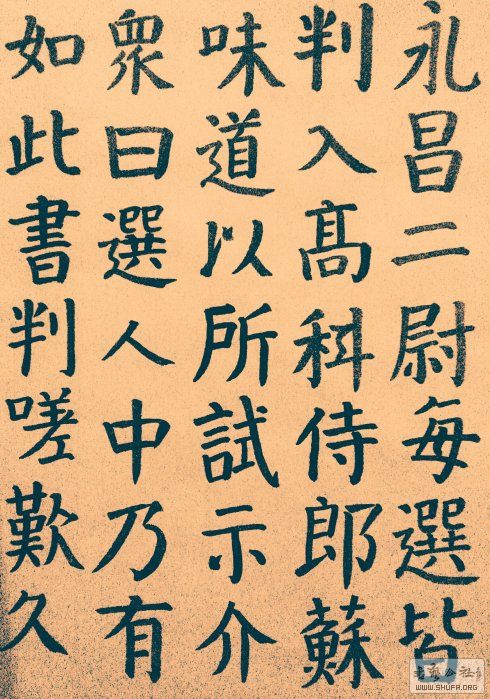 永昌二尉每選皆
判入髙科侍郎蘇
味道以所試示介
衆曰選人中乃有
如此書判嗟歎久
WWW.SHUFA.ORG